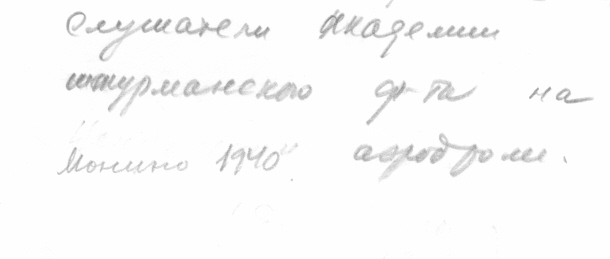 слушатели Академии
штурманского ф-та на
Монино 1940" аэродроме.